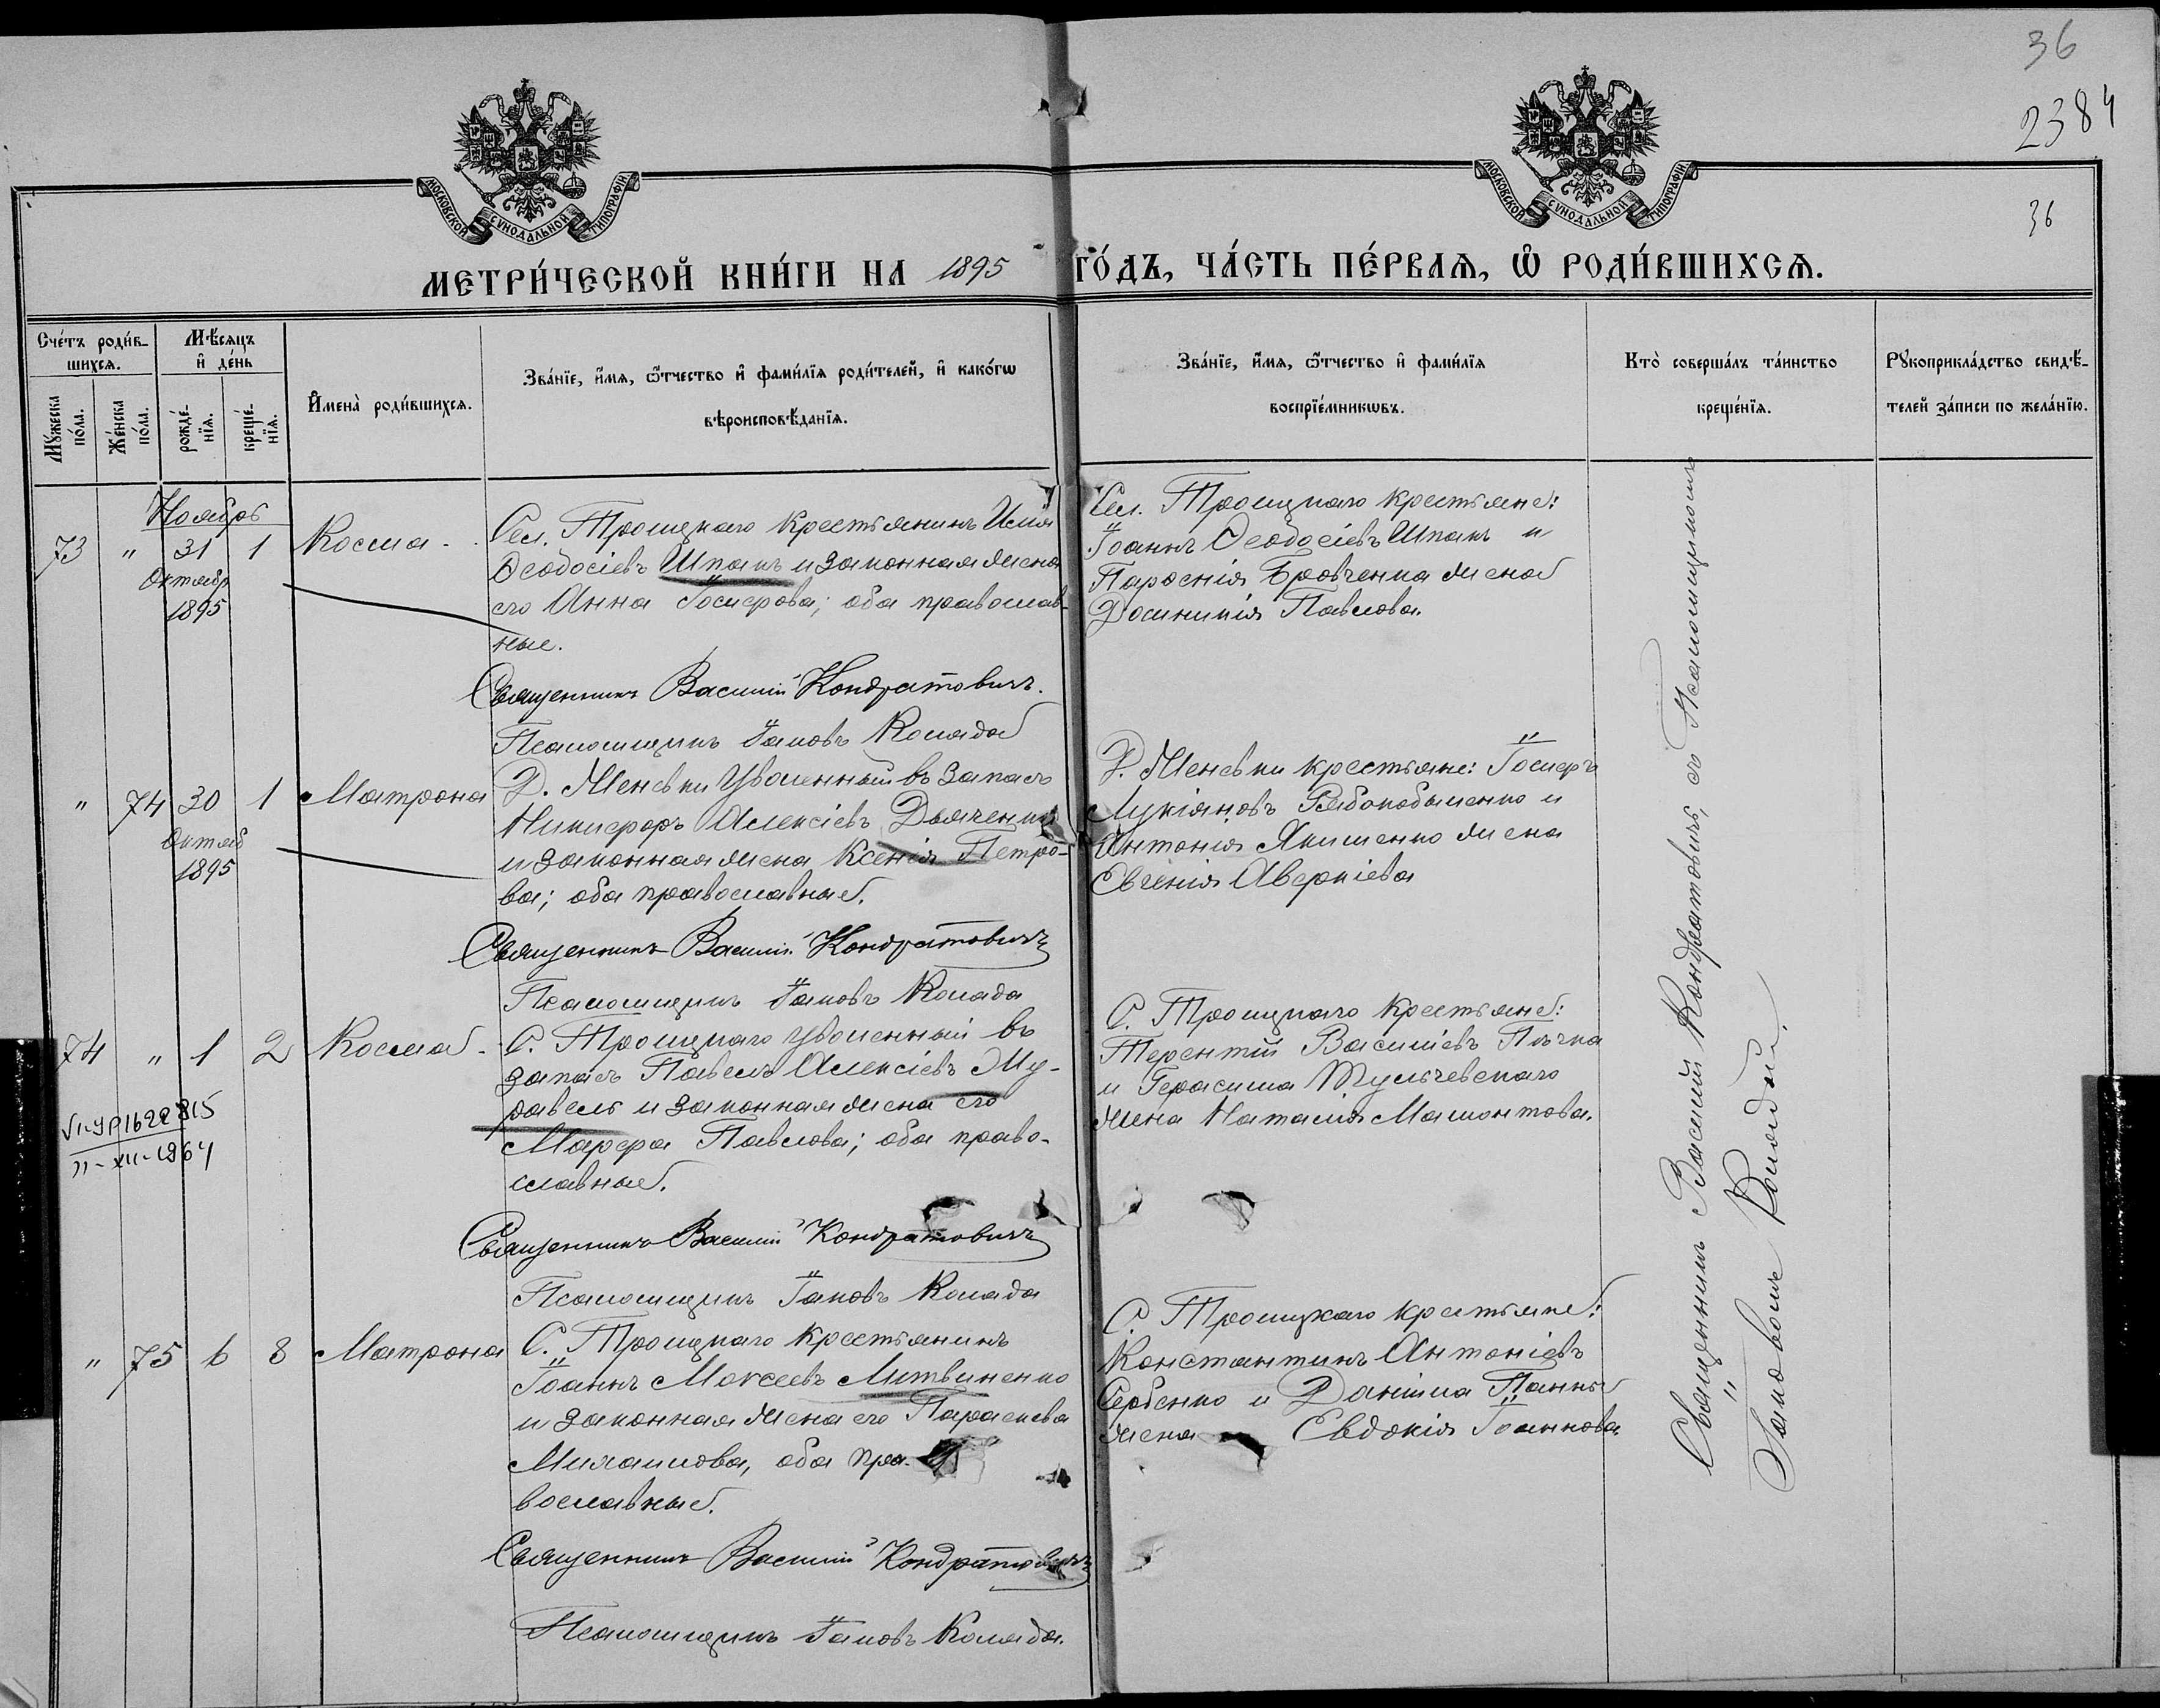 36
2384
36
МОСКОВСКОЙ СУНОДАЛЬНОЙ ТИПОГРАФІИ
МОСКОВСКОЙ СУНОДАЛЬНОЙ ТИПОГРАФІИ
МЕТРИ́ЧЕСКОЙ КНИ́ГИ НА 1895 ГО́ДЪ, ЧА́СТЬ ПЕ́РВАѦ, Ѡ РОДИ́ВШИХСѦ.
Сче́тъ роди́в-
шихсѧ.
Мꙋ́жеска по́ла.
Же́нска по́ла.
Мѣ́сѧцъ
и҆ де́нь
рожде́-
нїѧ.
креще́-
нїѧ.
И҆мена̀ роди́вшихсѧ.
Зва́нїе, и҆́мѧ, ѻ҆́тчество и҆ фами́лїѧ роди́телей, и҆ како́гѡ
вѣроисповѣ́данїѧ.
Зва́нїе, и҆́мѧ, ѻ҆́тчество и҆ фами́лїѧ
воспрїе́мникѡвъ.
Кто̀ соверша́лъ та́инство
креще́нїѧ.
Рꙋкоприкла́дство свидѣ́-
телей за́писи по жела́нїю.
Ноябрь
73 " 31 1 Косма
Октябр
1895
Сел. Троицкаго крестьянинъ Илія
Ѳеодосіевъ Шпакъ и законная жена
его Анна Іосифова; оба православ-
ные.
Священникъ Василій Кондратовичъ.
Псаломщикъ Іаковъ Коляда
Сел. Троицкаго крестьяне:
Іоаннъ Ѳеодосіевъ Шпакъ и
Парѳенія Бровченка жена
Домникія Павлова.
" 74 30 1 Матрона
Октяб
1895
Д. Меневки уволенный въ запасъ
Никифоръ Алексіевъ Дьяченко
и законная жена Ксенія Петро-
ва; оба православные.
Священникъ Василій Кондратовичъ
Псаломщикъ Іаковъ Коляда
Д. Меневки крестьяне: Іосифъ
Лукіяновъ Рябокобыленко и
Антонія Якименко жена
Евгенія Аверкіева
74 " 1 2 Косма
11-XII-1964
С. Троицкаго уволенный въ
запасъ Павелъ Алексіевъ Жу-
равель и законная жена его
Марфа Павлова; оба право-
славные.
Священникъ Василій Кондратовичъ
Псаломщикъ Іаковъ Коляда
С. Троицкаго крестьяне:
Терентій Василіевъ Пѣчка
и Герасима Тульчевскаго
жена Наталія Мамонтова.
" 75 6 8 Матрона
С. Троицкаго крестьянинъ
Іоаннъ Моѵсеевъ Литвиненко
и законная жена его Параскева
Михаилова, оба пра-
вославные.
Священникъ Василій Кондратовичъ
Псаломщикъ Іаковъ Коляда.
С. Троицкаго крестьяне:
Константинъ Антоніевъ
Сербенко и Даніила Панны
жена Евдокія Іоаннова.
Священникъ Василій Кондратовичъ, съ Псаломщикомъ
Іаковомъ Колядой.